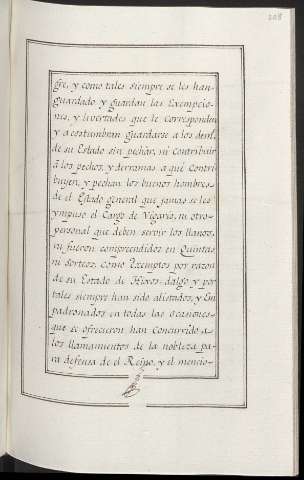 208
gre, y como tales siempre se les han
guardado y guardan las Exempcio-
nes, y livertades que le Corresponden
y acostumbran guardarse a los demas
de su Estado sin pechar, ni contribuir
â los pechos, y derramas a que Contri
buyen, y pechan los buenos hombres
de el Estado general que jamas se les
ympuso el Cargo de Vigario, ni otro
personal que deben servir los llanos,
ni fueron compreendidos en Quintas
ni Sorteos, Como Exemptos por razon
de su Estado de Hixos-dalgo y por
tales siempre han sido alistados, y Em
padronados en todas las ocasiones
que se ofrecieron han Concurrido a
los llamamientos de la nobleza pa-
ra defensa de el Reyno, y el mencio-